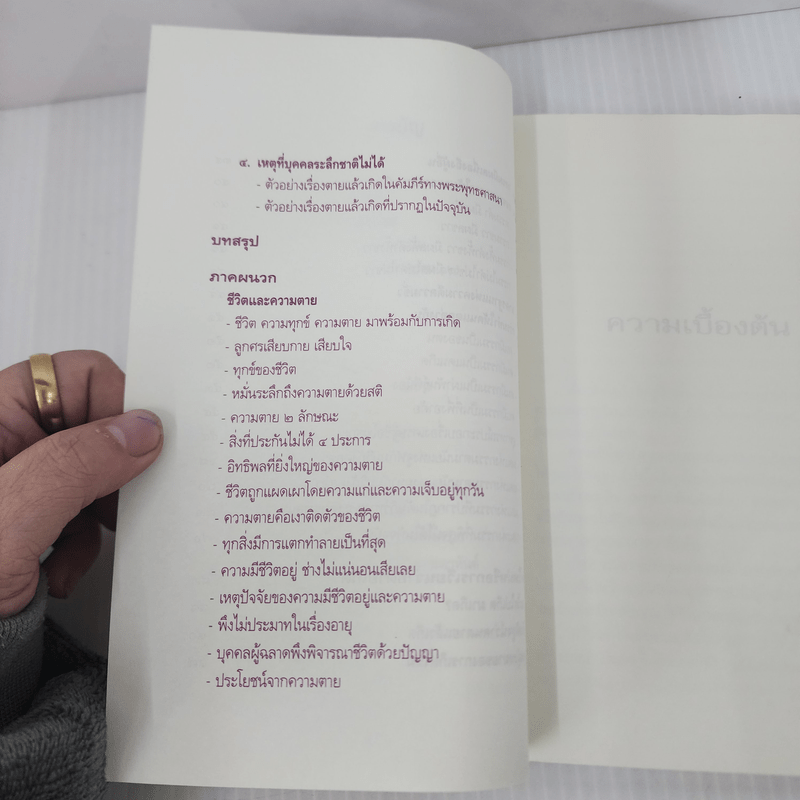 ๔. เหตุที่บุคคลระลึกชาติไม่ได้
- ตัวอย่างเรื่องตายแล้วเกิดในคัมภีร์ทางพระพุทธศาสนา
- ตัวอย่างเรื่องตายแล้วเกิดที่ปรากฏในปัจจุบัน
บทสรุป
ภาคผนวก
ชีวิตและความตาย
- ชีวิต ความทุกข์ ความตาย มาพร้อมกับการเกิด
- ลูกศรเสียบกาย เสียบใจ
- ทุกข์ของชีวิต
- หมั่นระลึกถึงความตายด้วยสติ
- ความตาย ๒ ลักษณะ
- สิ่งที่ประกันไม่ได้ ๔ ประการ
- อิทธิพลที่ยิ่งใหญ่ของความตาย
- ชีวิตถูกแผดเผาโดยความแก่และความเจ็บอยู่ทุกวัน
- ความตายคือเงาติดตัวของชีวิต
- ทุกสิ่งมีการแตกทำลายเป็นที่สุด
- ความมีชีวิตอยู่ ช่างไม่แน่นอนเสียเลย
- เหตุปัจจัยของความมีชีวิตอยู่และความตาย
- พึงไม่ประมาทในเรื่องอายุ
- บุคคลผู้ฉลาดพึงพิจารณาชีวิตด้วยปัญญา
- ประโยชน์จากความตาย
ความเบื้องต้น